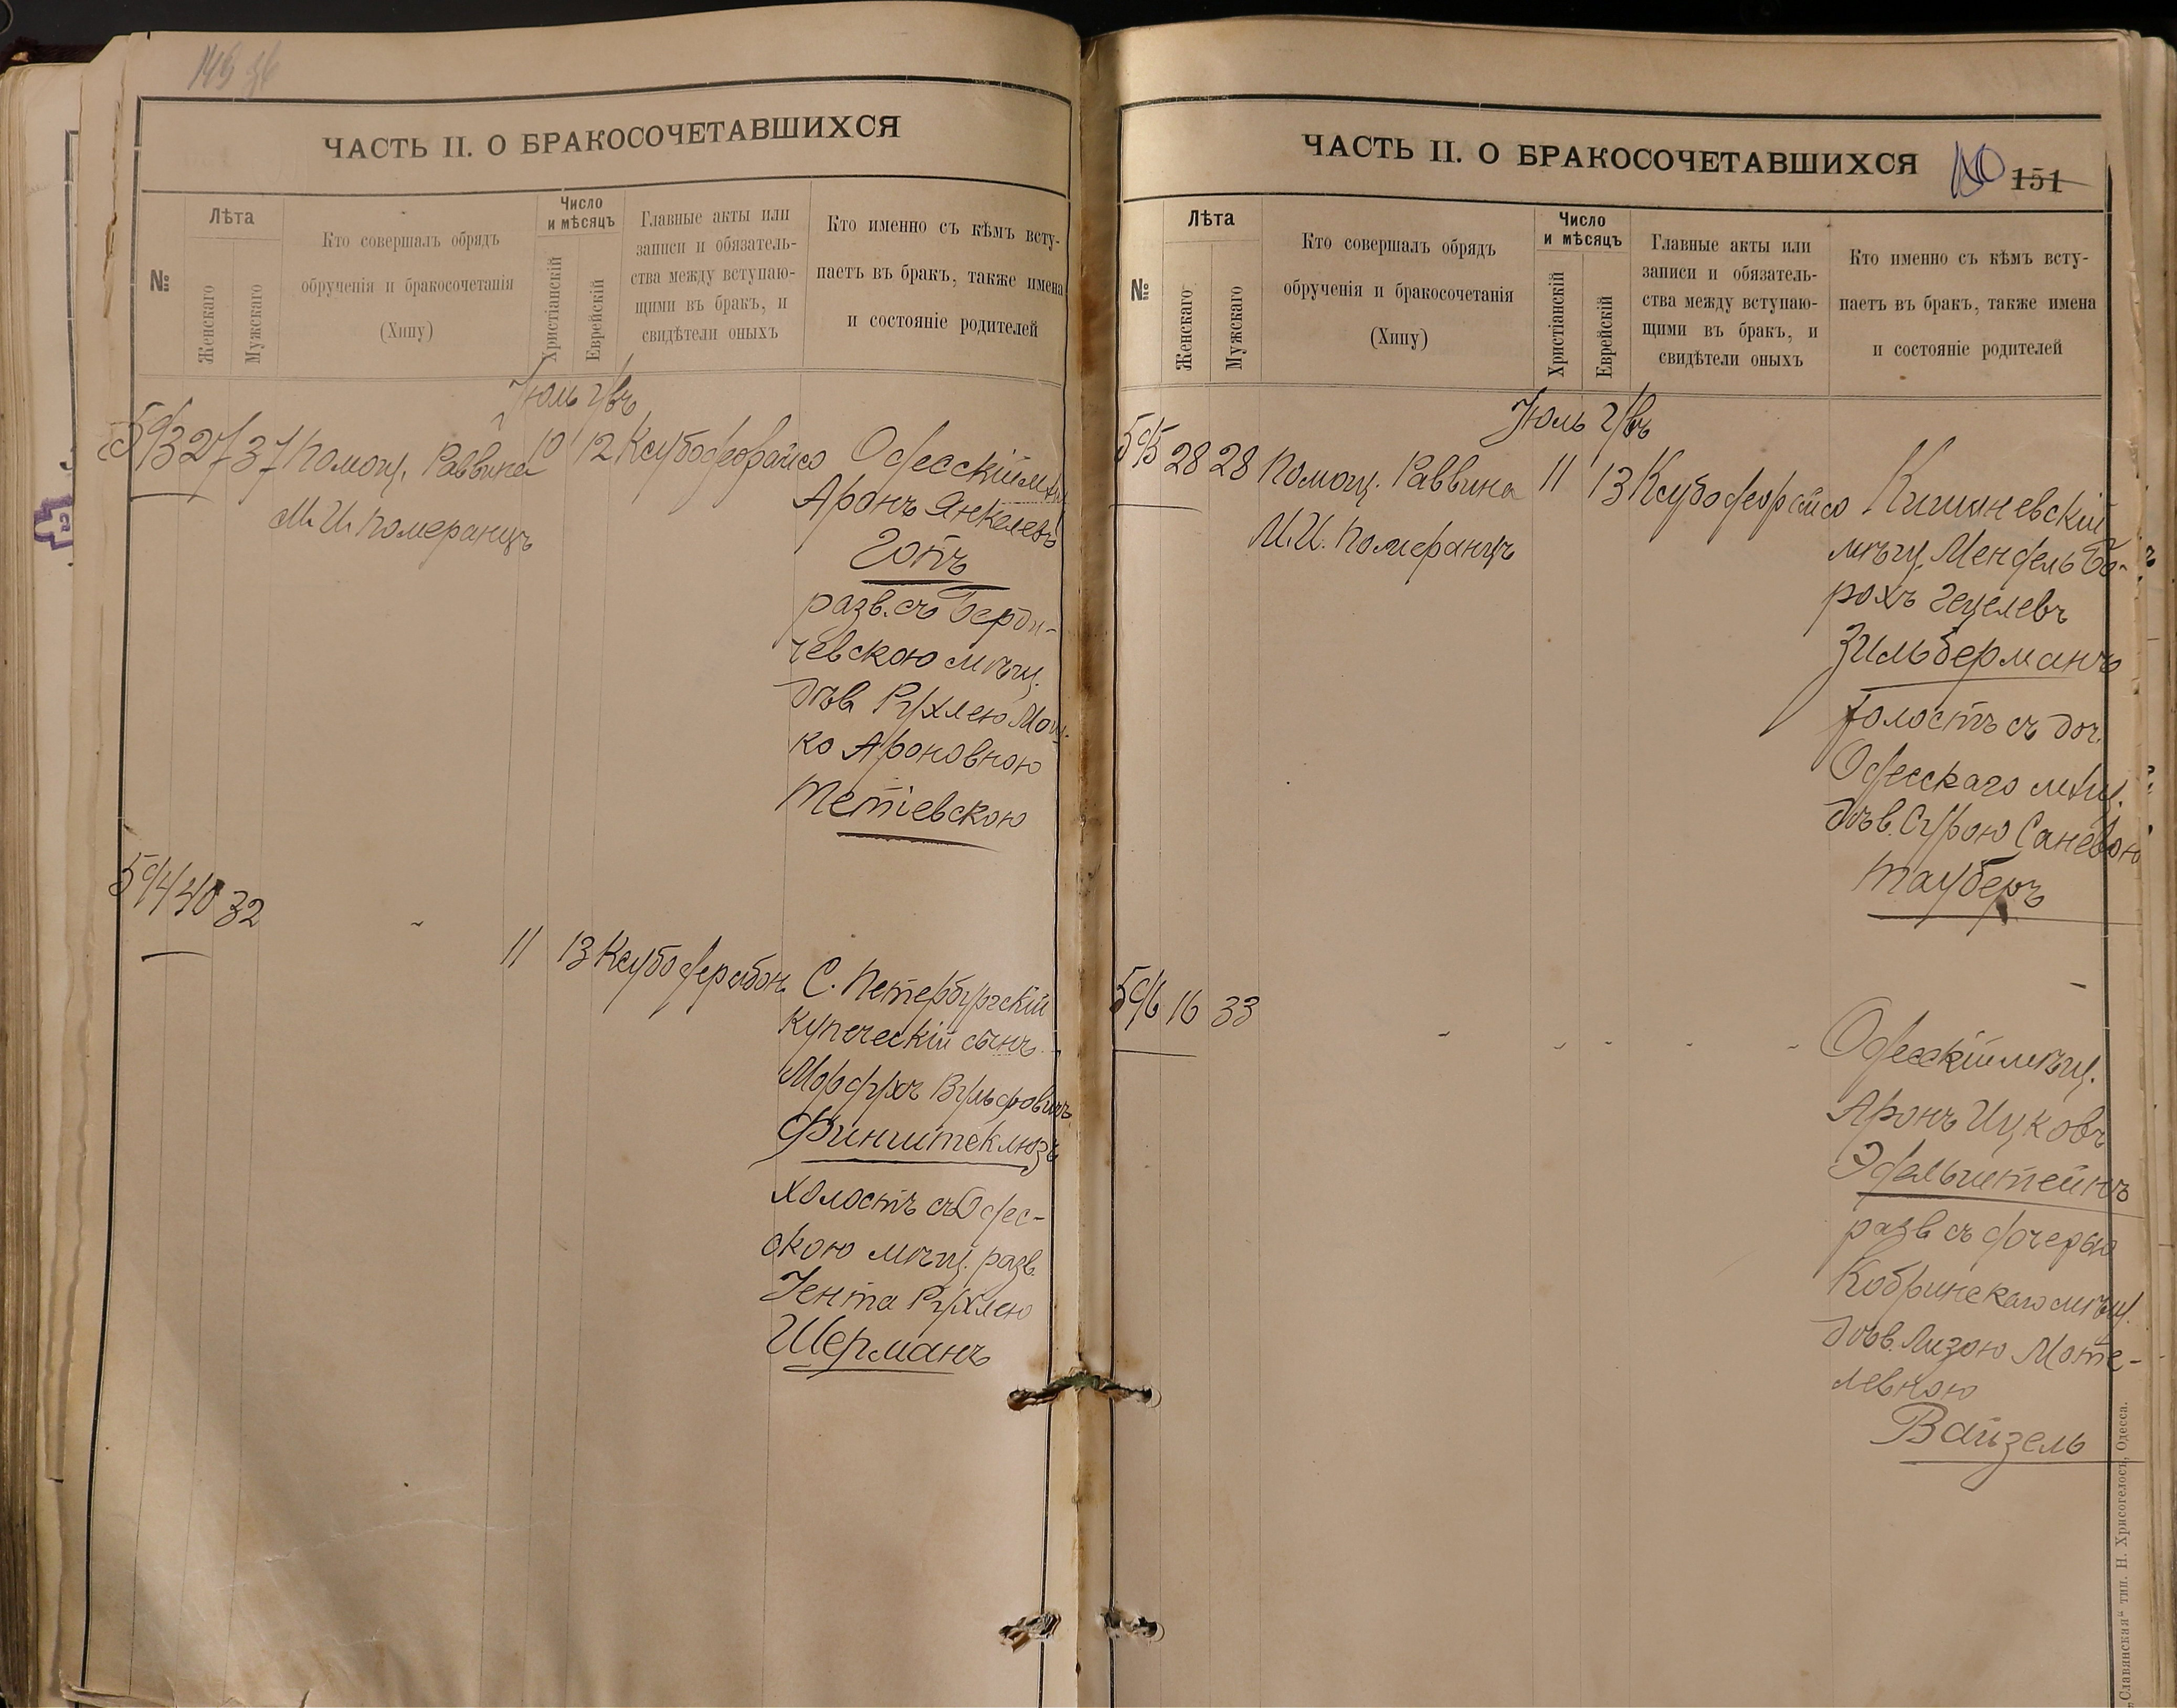 ЧАСТЬ II. О БРАКОСОЧЕТАВШИХСЯ
№
Лѣта
Женскаго
Мужскаго
Кто совершалъ обрядъ
обрученія и бракосочетанія
(Хипу)
Число
и мѣсяцъ
Христіанскій
Еврейскій
Главные акты или
записи и обязатель-
ства между вступаю-
щими въ бракъ, и
свидѣтели оныхъ
Кто именно съ кѣмъ всту-
паетъ въ бракъ, также имена
и состояніе родителей
Іюль
593 27 37 Помощ. Раввина 10 12
М. И. Померанцъ
Одесскій мѣщ.
Аронъ Янкелевъ
Готъ
разв. съ Берди-
чевскою мѣщ.
дѣв Рухлею Мош-
ко Ароновною
Тетіевскою
594 40 32 11 13
С. Петербургскій
купеческій сынъ
Мордухъ Вульфовичъ
Финштеклюзъ
холостъ съ Одес-
скою мѣщ. разв.
Іента Рухлею
Шерманъ
ЧАСТЬ II. О БРАКОСОЧЕТАВШИХСЯ
151
№
Лѣта
Женскаго
Мужскаго
Кто совершалъ обрядъ
обрученія и бракосочетанія
(Хипу)
Число
и мѣсяцъ
Христіанскій
Еврейскій
Главные акты или
записи и обязатель-
ства между вступаю-
щими въ бракъ, и
свидѣтели оныхъ
Кто именно съ кѣмъ всту-
паетъ въ бракъ, также имена
и состояніе родителей
Іюль
595 28 28 Помощ. Раввина 11 13
И. И. Померанцъ
Кишиневскій
мѣщ. Мендель Бо-
рохъ Гецелевъ
Зильберманъ
холостъ съ доч.
Одесскаго мѣщ.
дѣв. Сурою Саневою
Тауберъ
596 16 33
Одесскій мѣщ.
Аронъ Ицковъ
Эдельштейнъ
разв съ дочерью
Кобринскаго мѣщ.
дѣв. Лизою Моте-
левною
Вайзель
„Славянская“ тип. Н. Хрисогелосъ, Одесса.